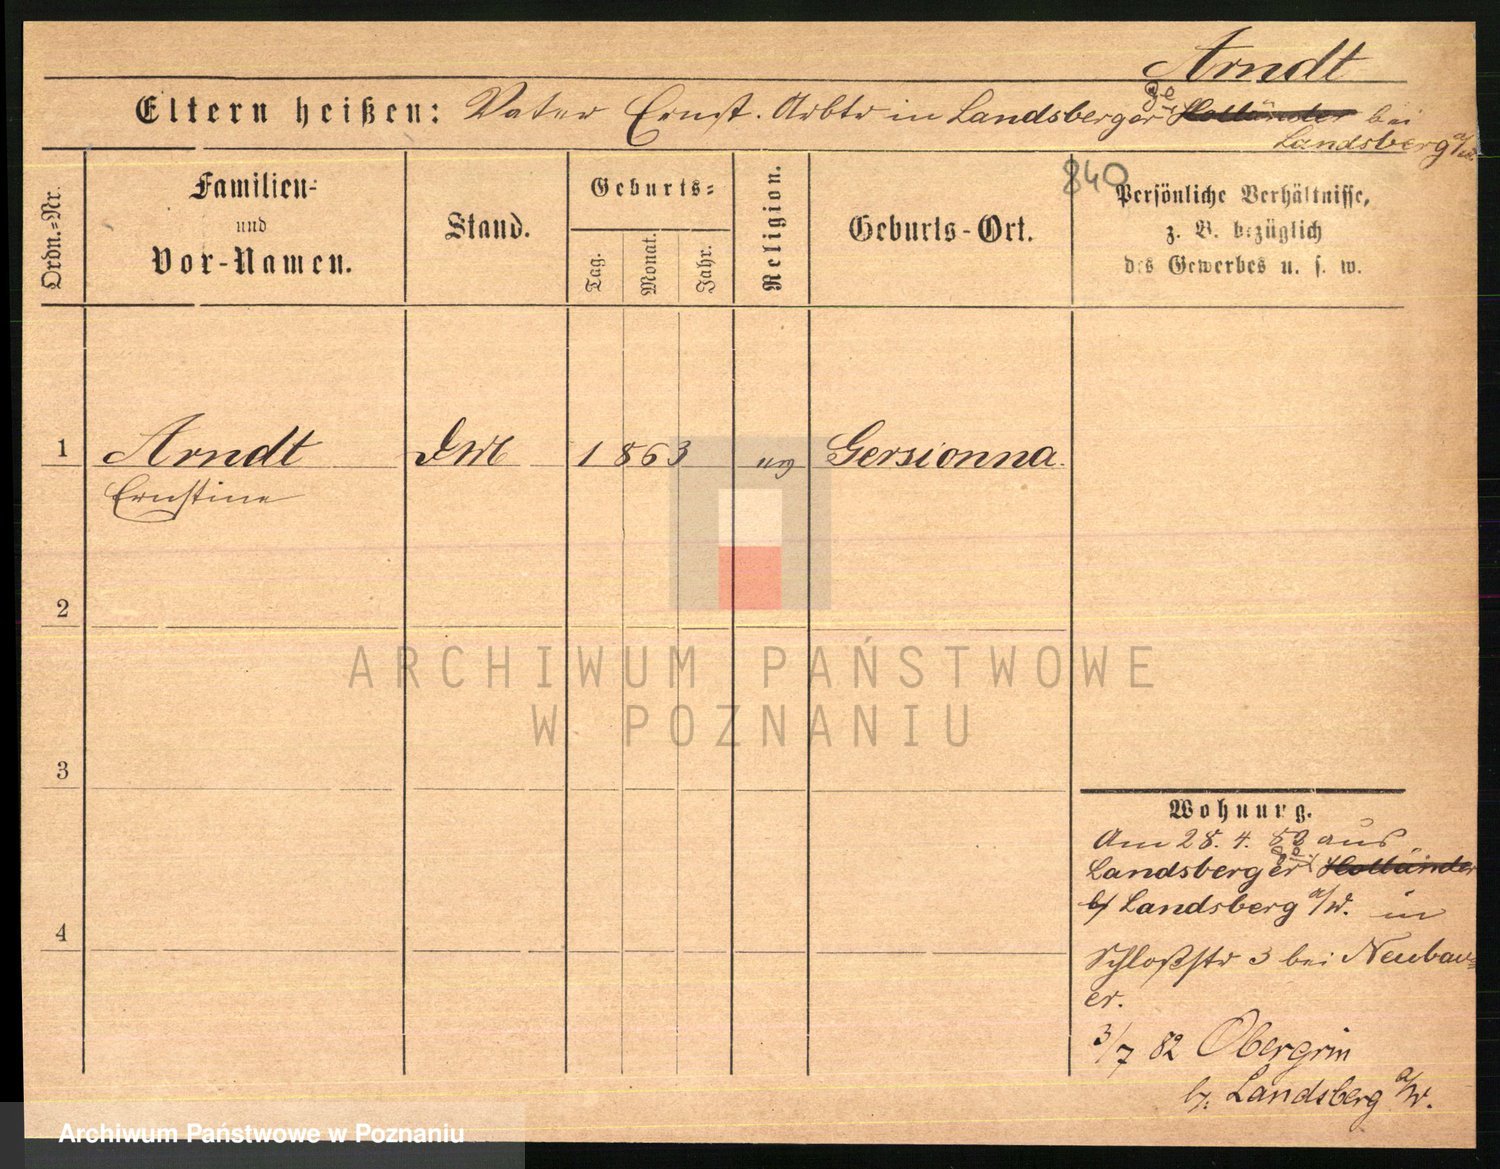 Arndt
Eltern heißen: Vater Ernst. Arbtr in Landsberger Holländer bei
Landsberg a/W.
840
Ordn.=Nr.
Familien=
und
Vor-Namen.
Stand.
Geburts=
Tag.
Monat.
Jahr.
Religion.
Geburts-Ort.
Persönliche Verhältnisse,
z. B. bezüglich
des Gewerbes u. s. w.
1 Arndt 1863 Gersionna.
Ernstine
2
3
4
Wohnung.
Am 28. 4. aus
Landsberger Holländer
b/ Landsberg a/W. in
Schloßstr 3 bei Neubau=
er.
3/7 82
b. Landsberg a/W.
ARCHIWUM PAŃSTWOWE
W POZNANIU
Archiwum Państwowe w Poznaniu